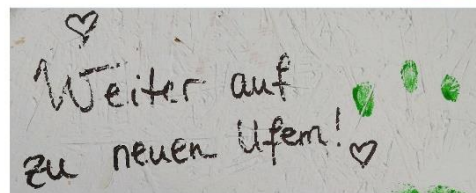 Weiter auf
zu neuen Ufern!